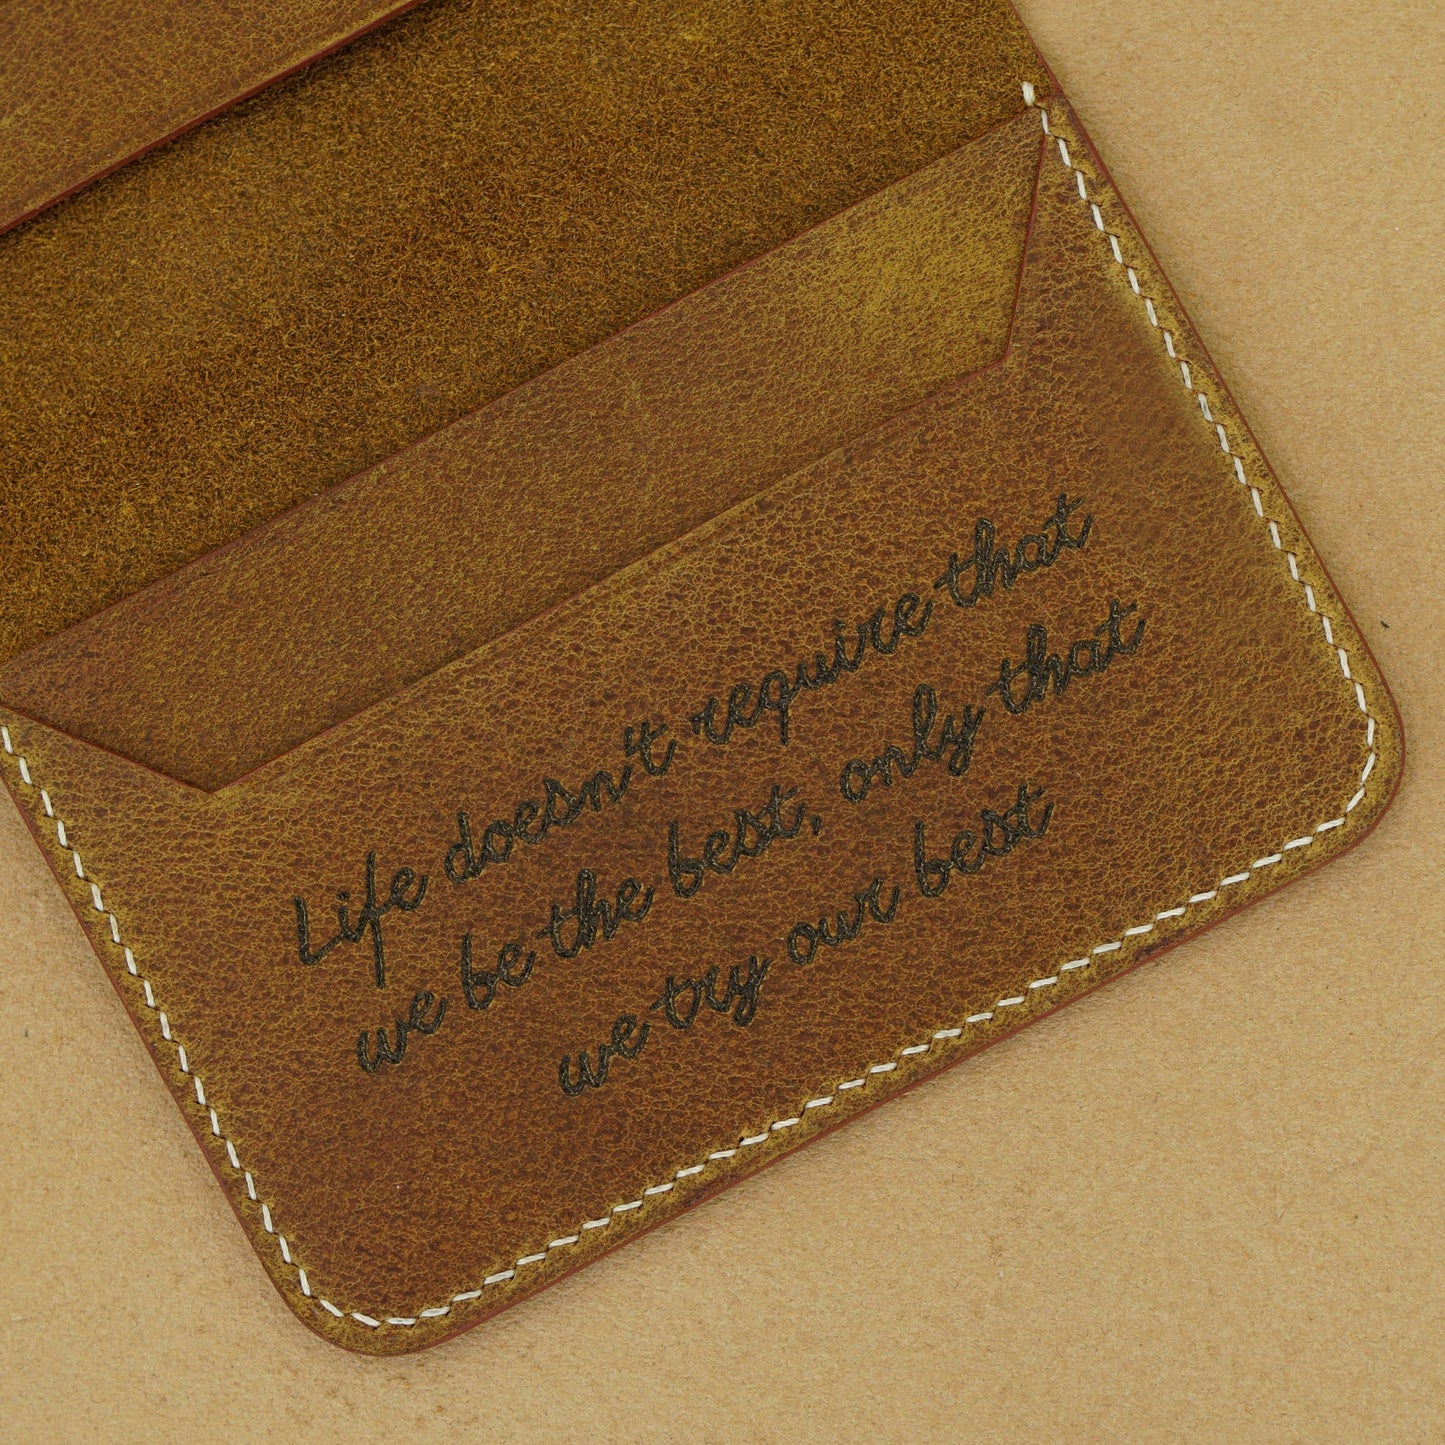 Life doesn't require that
we be the best, only that
we try our best